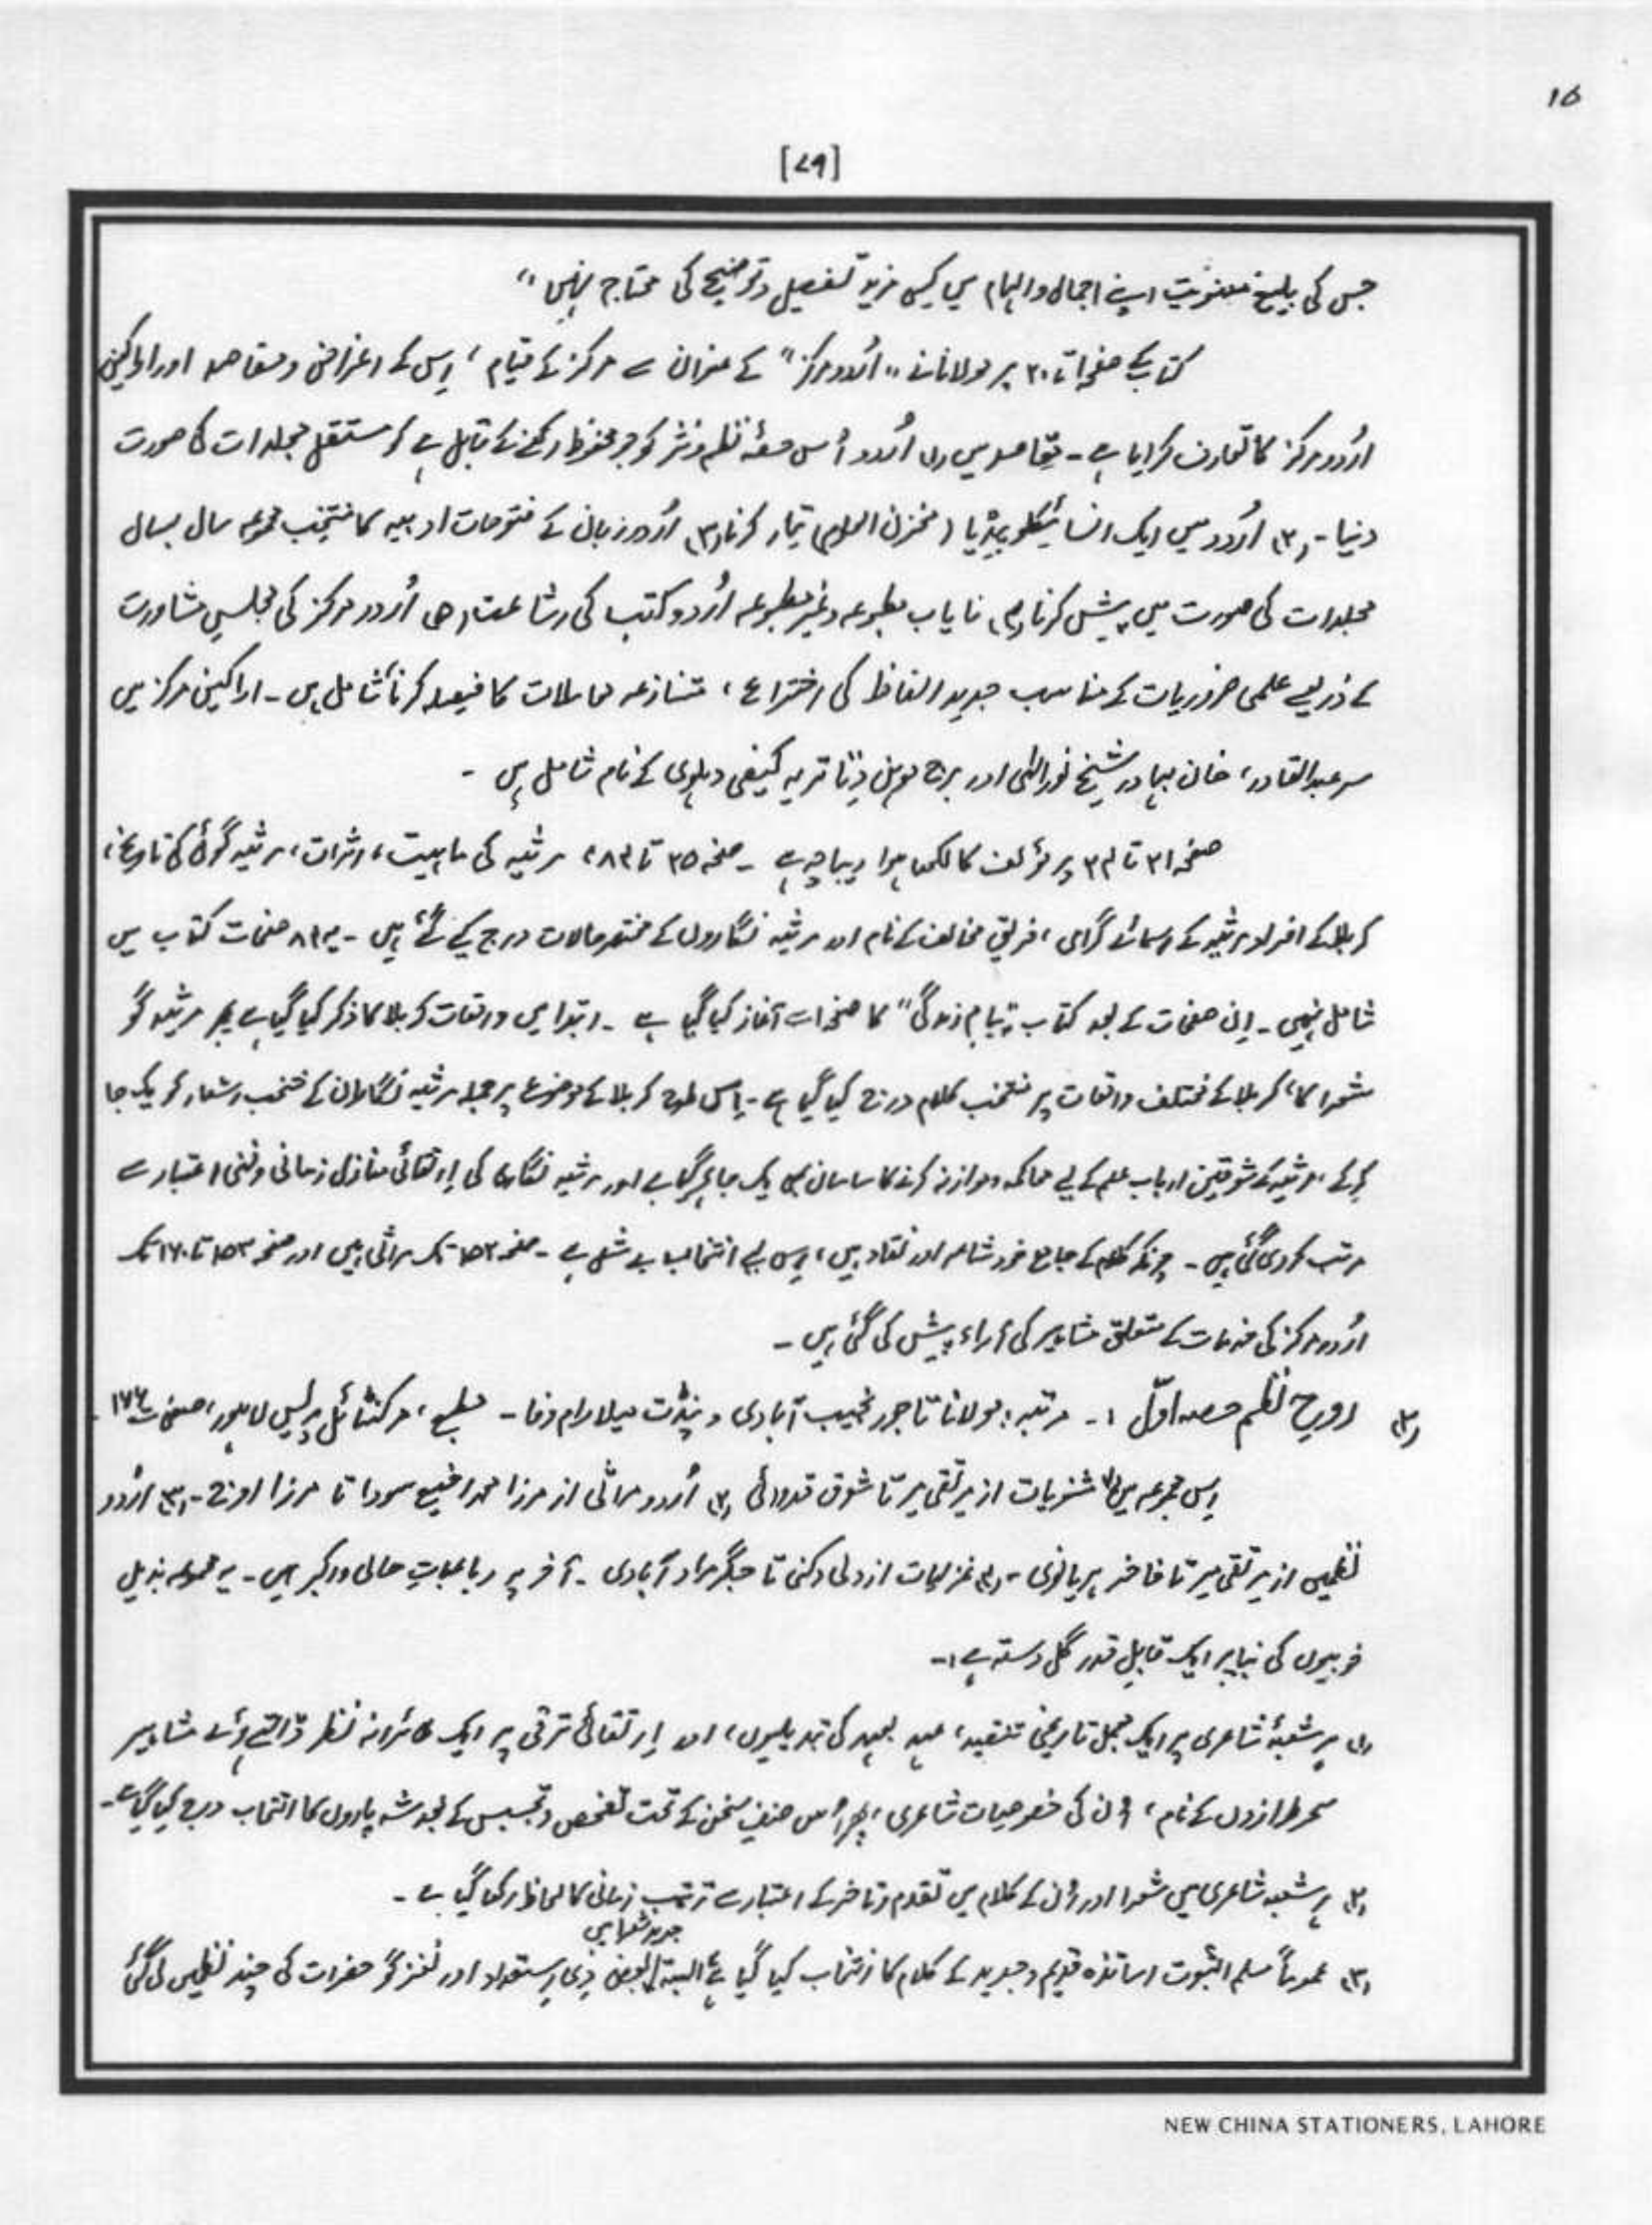 ۱۵
[۷۹]
جس کی بلیغ معنویت اپنے اجمال و ابہام میں کسی مزید تفصیل و توضیح کی محتاج نہیں"
کتاب کے صفحہ ا تا ۳۰ پر مولانا نے "اُردو مرکز" کے عنوان سے مرکز کے قیام، اِس کے اغراض و مقاصد اور اراکینِ
اُردو مرکز کا تعارف کرایا ہے۔ مقاصد میں (۱) اُردو اُس حصۂ نظم و نثر کو جو محفوظ رکھنے کے قابل ہے کو مستقل مجلدات کا صورت
دینا۔ (۲) اُردو میں ایک انسائیکلوپیڈیا (مخزن العلوم) تیار کرنا (۳) اُردو زبان کے فتوحات ادبیہ کا منتخب مجموعہ سال بسال
مجلدات کی صورت میں پیش کرنا (۴) نایاب مطبوعہ و غیر مطبوعہ اُردو کتب کی اشاعت (۵) اُردو مرکز کی مجلسِ مشاورت
کے ذریعے علمی ضروریات کے مناسب جدید الفاظ کی اختراع، متنازعہ معاملات کا فیصلہ کرنا شامل ہیں۔ اراکینِ مرکز میں
سر عبدالقادر، خان بہادر شیخ نور الٰہی اور برج موہن دتاتریہ کیفی دہلوی کے نام شامل ہیں۔
صفحہ ۳۱ تا ۳۴ پر مؤلف کا لکھا ہوا دیباچہ ہے۔ صفحہ ۳۵ تا ۸۴، مرثیہ کی ماہیت، اثرات، مرثیہ گوئی کی تاریخ،
کربلا کے افراد مرثیہ کے اسمائے گرامی، فریقِ مخالف کے نام اور مرثیہ نگاروں کے مختصر حالات درج کیے گئے ہیں۔ یہ ۸۴ صفحات کتاب میں
شامل نہیں۔ اِن صفحات کے بعد کتاب "پیامِ زندگی" کا صفحہ ا سے آغاز کیا گیا ہے۔ ابتدا میں واقعات کربلا کا ذکر کیا گیا ہے پھر مرثیہ گو
شعرا کا، کربلا کے مختلف واقعات پر منتخب کلام درج کیا گیا ہے۔ اِس طرح کربلا کے موضوع پر جملہ مرثیہ نگاران کے منتخب اشعار کو یک جا
کر کے، مرثیہ کے شوقین ارباب علم کے لیے محاکمہ و موازنہ کرنے کا سامان بھی یک جا ہو گیا ہے اور مرثیہ نگاری کی اِرتقائی منازل زمانی و فنی اعتبار سے
مرتب کر دی گئی ہیں۔ چونکہ کلام کے جامع خود شاعر اور نقاد ہیں، اِس لیے انتخاب بے مثل ہے۔ صفحہ ۱۵۲ تک مراثی ہیں اور صفحہ ۱۵۳ تا ۱۷۰ تک
اُردو مرکز کی خدمات کے متعلق مشاہیر کی آراء پیش کی گئی ہیں۔
(۲) روحِ نظم حصہ اوّل :۔ مرتبہ: مولانا تاجور نجیب آبادی و پنڈت میلا رام وفا۔ مطبع، مرکنٹائل پریس لاہور، صفحات ۱۷۶
اِس مجموعہ میں (۱) مثنویات از میر تقی میر تا شوق قدوائی (۲) اُردو مراثی از مرزا محمد رفیع سودا تا مرزا اوج۔ (۳) اُردو
نظمیں از میر تقی میر تا فاخر ہریانوی۔ (۴) غزلیات از ولی دکنی تا جگر مراد آبادی۔ آخر پر رباعیاتِ حالی و اکبر ہیں۔ یہ مجموعہ بذیل
خوبیوں کی بنا پر ایک قابلِ قدر گل دستہ ہے:۔
(۱) ہر شعبۂ شاعری پر ایک مجمل تاریخی تنقید، عہد بعہد کی تبدیلیوں، اور اِرتقائی ترقی پر ایک طائرانہ نظر ڈالتے ہوئے مشاہیر
سحر طرازوں کے نام، اُن کی خصوصیات شاعری، پھر اُس صنفِ سخن کے تحت تفحص و تجسس کے بعد شہ پاروں کا انتخاب درج کیا گیا ہے۔
(۲) ہر شعبہ شاعری میں شعرا اور اُن کے کلام میں تقدم و تاخر کے اعتبار سے ترتیبِ زمانی کا لحاظ رکھا گیا ہے۔
جدید شعرا میں
(۳) عموماً مسلم الثبوت اساتذہ قدیم و جدید کے کلام کا انتخاب کیا گیا ہے البتہ بعض ذی اِستعداد اور نغز گو حضرات کی چند نظمیں لی گئی
NEW CHINA STATIONERS, LAHORE